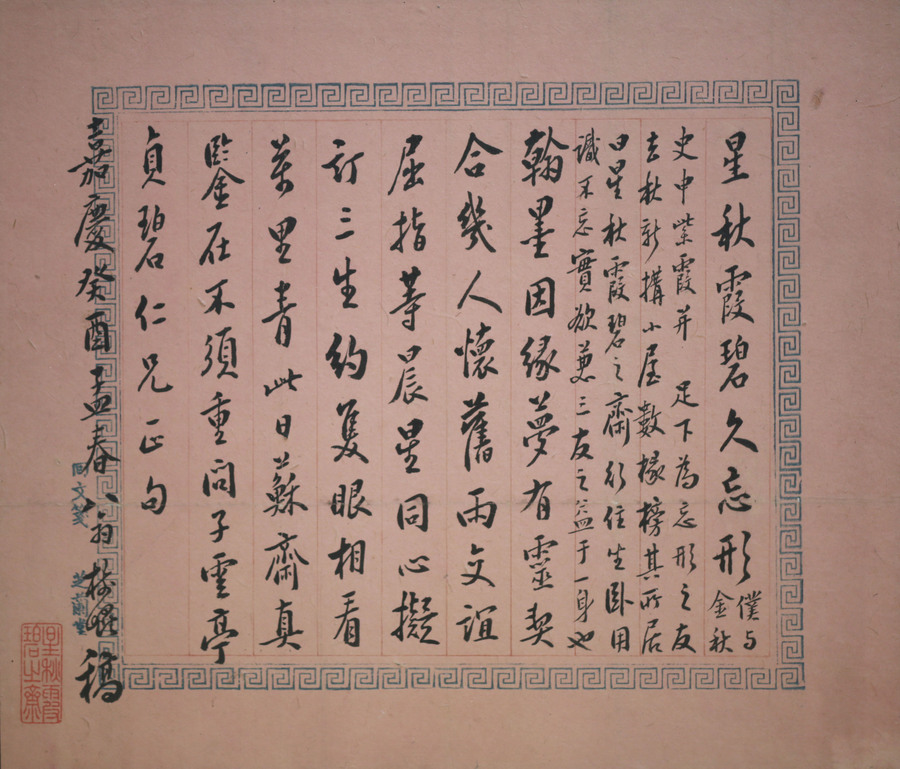 星秋霞碧久忘形
僕与
金秋
史申紫霞并 足下為忘形之友
去秋新搆小屋數椽榜其所居
曰星秋霞碧之齋行住坐卧用
識不忘實欲兼三友之益于一身也
翰墨因緣夢有靈契
合幾人懷舊雨文誼
屈指等晨星同心擬
訂三生約隻眼相看
萬里青此日蘇齋真
鑒在不須重問子雲亭
貞碧仁兄正句
嘉慶癸酉孟春 翁樹崐稿
回文箋 芝蘭堂
星秋霞碧之齋